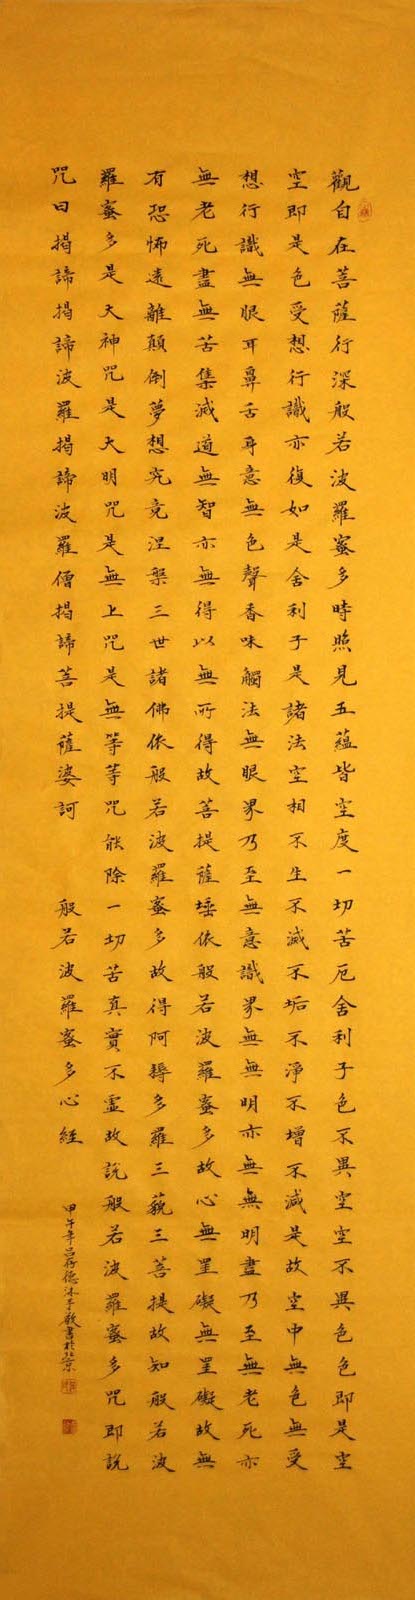 觀自在菩薩行深般若波羅蜜多時照見五蘊皆空度一切苦厄舍利子色不異空空不異色色即是空
空即是色受想行識亦復如是舍利子是諸法空相不生不滅不垢不淨不增不減是故空中無色無受
想行識無眼耳鼻舌身意無色聲香味觸法無眼界乃至無意識界無無明亦無無明盡乃至無老死亦
無老死盡無苦集滅道無智亦無得以無所得故菩提薩埵依般若波羅蜜多故心無罣礙無罣礙故無
有恐怖遠離顛倒夢想究竟涅槃三世諸佛依般若波羅蜜多故得阿耨多羅三藐三菩提故知般若波
羅蜜多是大神咒是大明咒是無上咒是無等等咒能除一切苦真實不虛故說般若波羅蜜多咒即說
咒曰揭諦揭諦波羅揭諦波羅僧揭諦菩提薩婆訶 般若波羅蜜多心經
甲午年呂存德沐手敬書於北京